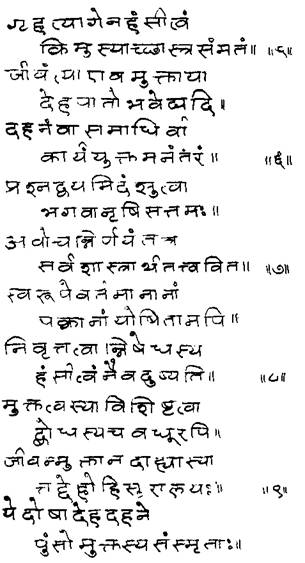 गृहत्यागेन हंसीत्वं
किमु स्याच्छास्त्र संमतं॥ ॥५॥
जीवंत्या एव मुक्ताया
देहपातो भवेद्यदि॥
दहनं वा समाधिर्वा
कार्यं युक्तमनंतरं॥ ॥६॥
प्रश्नद्वयमिदं श्रुत्वा
भगवानृषिसत्तमः॥
अवोचन्निर्णयं तत्र
सर्वशास्त्रार्थतत्त्ववित॥ ॥७॥
स्वरूपे वर्तमानानां
पक्वानां योषितामपि॥
निवृत्तत्वान्निषेधस्य
हंसीत्वं नैव दुष्यति॥ ॥८॥
मुक्तत्वस्याविशिष्टत्वा
द्बोधस्य च वधूरपि॥
जीवन्मुक्ता न दाह्या स्या
त्तद्देहो हि सुरालयः॥ ॥९॥
ये दोषा देहदहने
पुंसो मुक्तस्य संस्मृताः॥